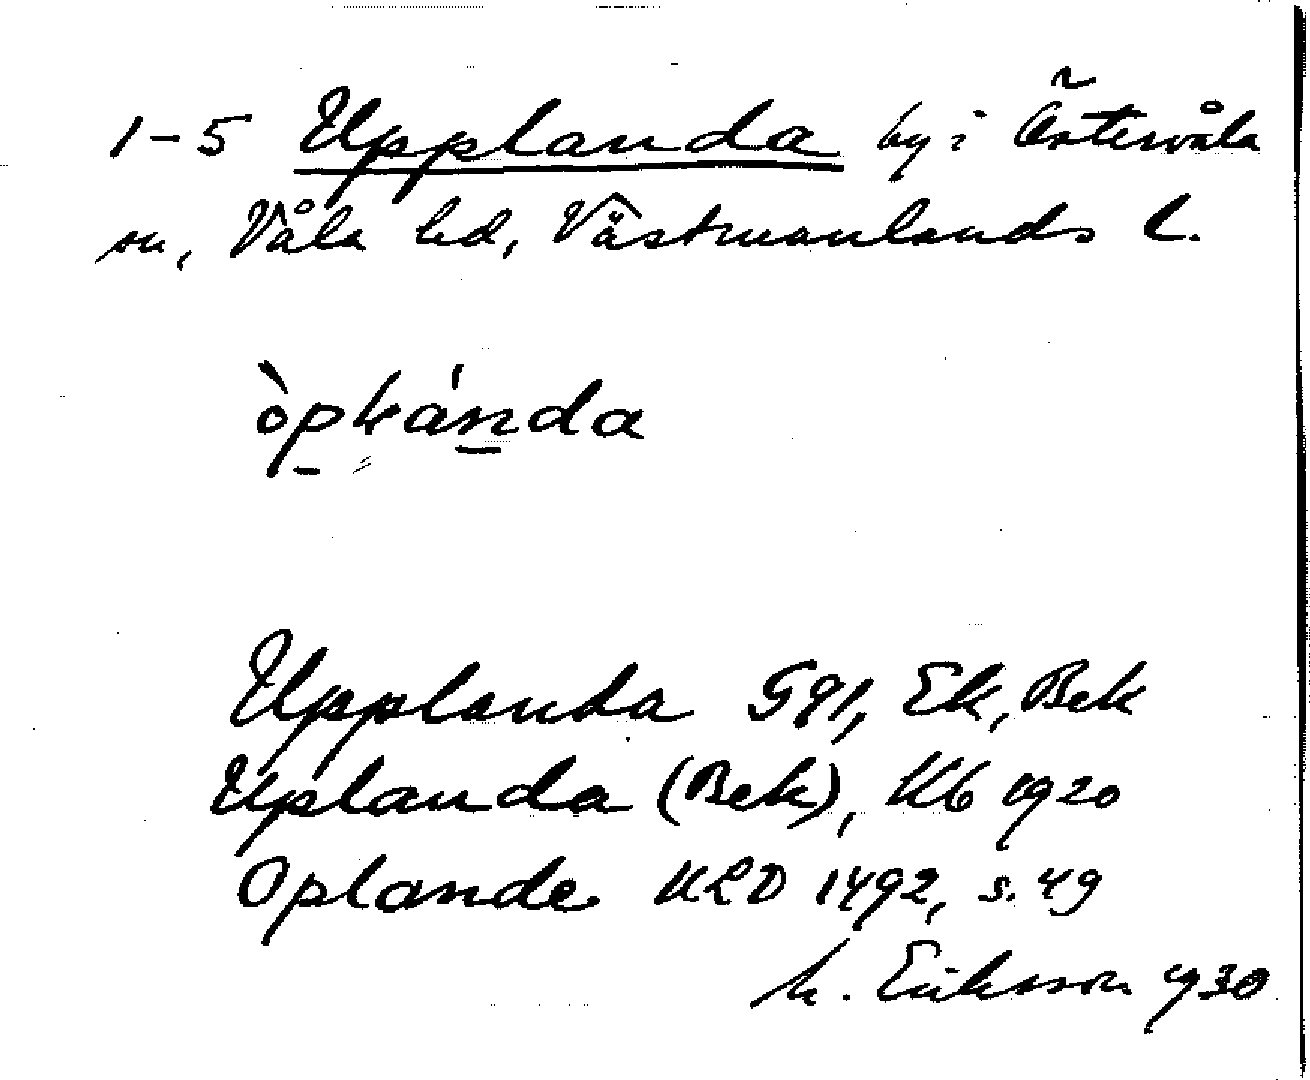 1-5 Upplanda by i Östervåla
sn, Våla hd, Västmanlands l.
òplánda
Upplanda G91, Ek, Bek
Uplanda (Bek), Kb 1920
Oplande KLD 1492, s. 49
M. Eriksson 1930